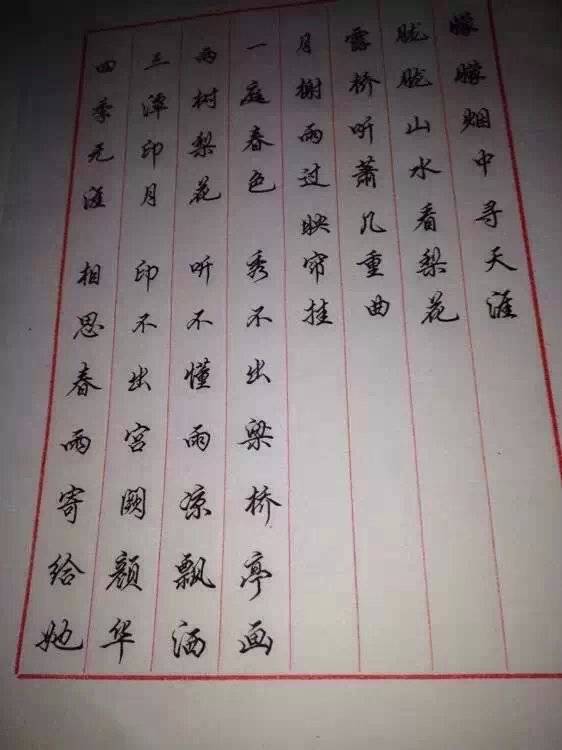 朦朦烟中寻天涯
胧胧山水看梨花
雪桥听萧几重曲
月榭雨过映帘挂
一庭春色 秀不出梁桥亭画
两树梨花 听不懂雨凉飘洒
三潭印月 印不出宫阙颜华
四季无涯 相思春雨寄给她